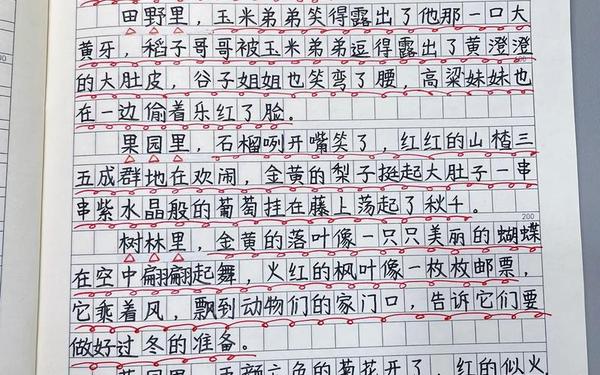 田野里，玉米弟弟笑得露出了他那一口大
黄牙，稻子哥哥被玉米弟弟逗得露出了黄澄澄
的大肚皮，谷子姐姐也笑弯了腰，高粱妹妹也
在一边偷着乐红了脸。
果园里，石榴咧开嘴笑了，红红的山楂三
五成群地在欢闹，金黄的梨子挺起大肚子一串
串紫水晶般的葡萄挂在藤上荡起了秋千。
200
树林里，金黄的落叶像一只只美丽的蝴蝶
在空中翩翩起舞，火红的枫叶像一枚枚邮票，
它乘着风，飘到动物们的家门口，告诉它们要
做好过冬的准备。
花园里，五颜六色的菊花开了，红的似火